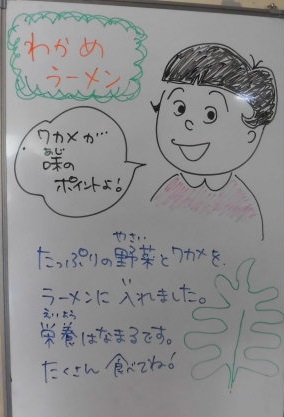 わかめ
ラーメン
ワカメが…
あじ
味の
ポイントよ!
やさい
たっぷりの野菜とワカメを
い
ラーメンに入れました。
えいよう
栄養はなまるです。
た
たくさん食べてね!